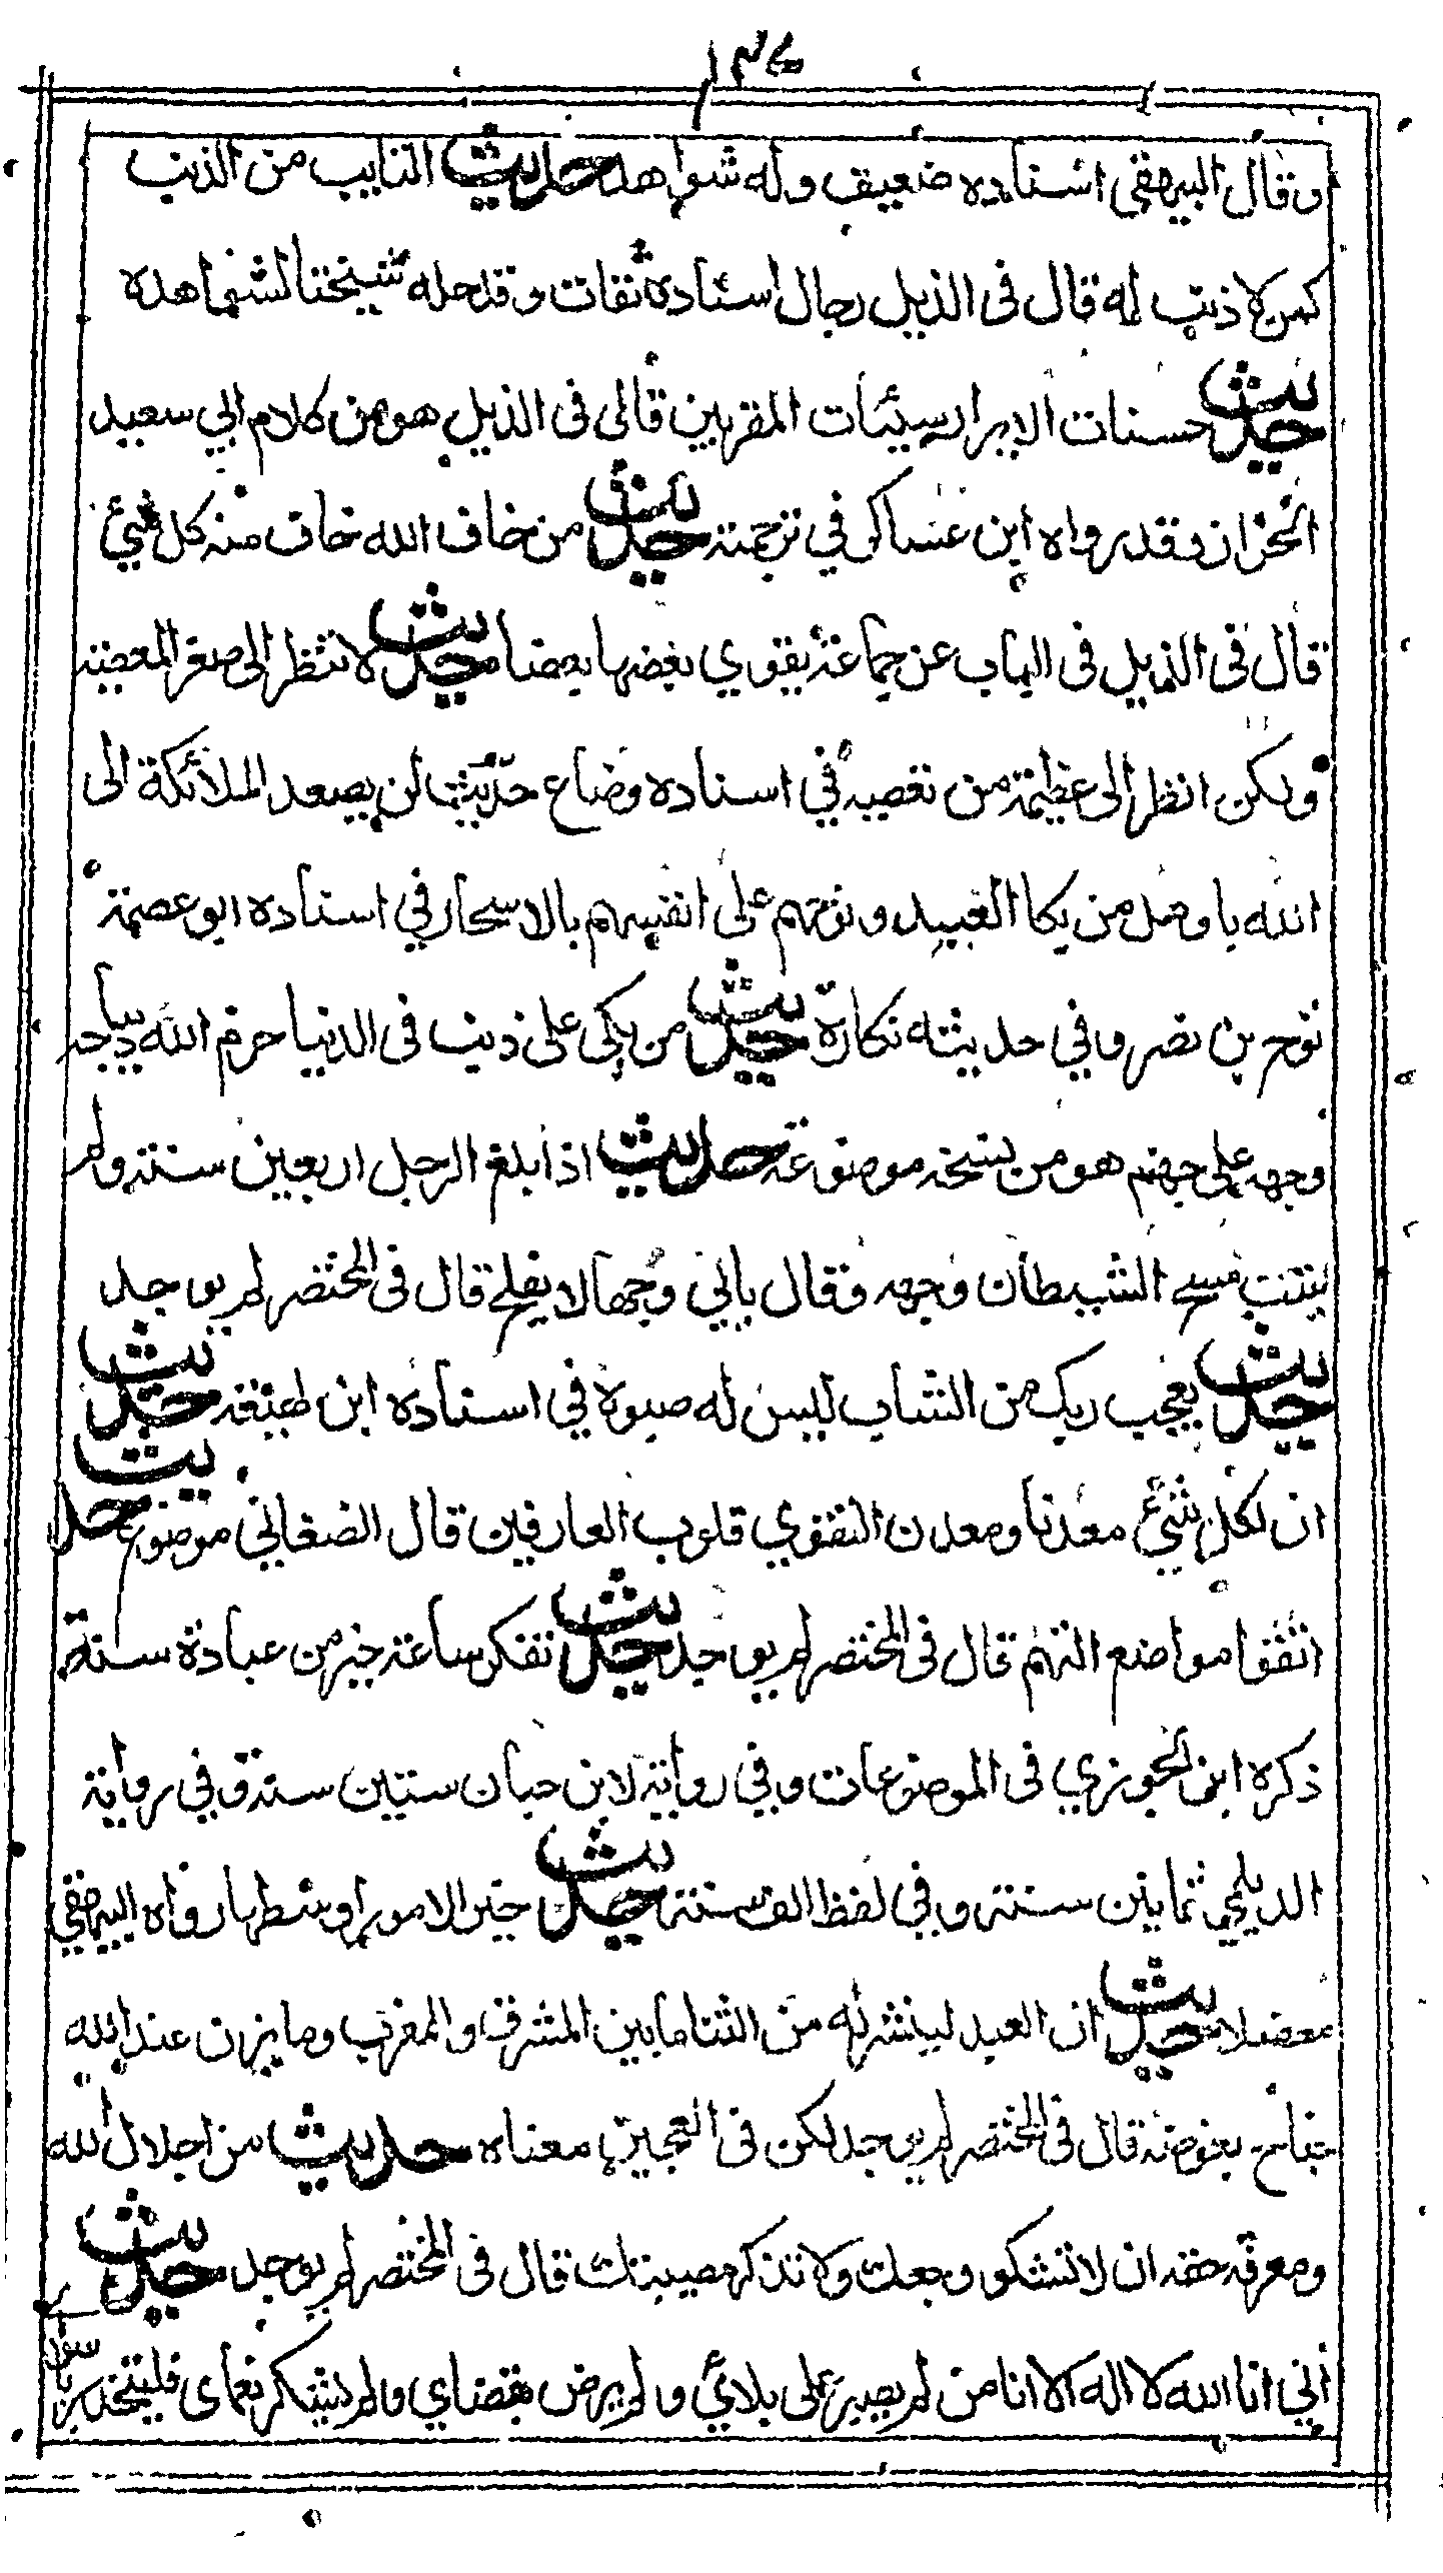 ١٣٤
وقال البيهقي اسناده ضعيف وله شواهد حديث التايب من الذنب
كمن لا ذنب له قال فى الذيل رجال اسناده ثقات وقد حله شيخنا لشواهده
حديث حسنات الابرار سيئات المقربين قال فى الذيل هو من كلام ابي سعيد
الخزان وقد رواه ابن عساكر في ترجمته حديث من خاف الله خاف منه كل شيئ
قال فى الذيل فى الباب عن جماعة يقوي بعضها بعضا حديث لا تنظر الى صغر المعصية
ولكن انظر الى عظمة من تعصيه في اسناده وضاع حديث ان يصعد الملائكة الى
الله بافضل من بكا العبيد ونوحهم على انفسهم بالاسحار في اسناده ابو عصمة
نوح بن نصر وفي حديثه نكارة حديث من بكى على ذنب فى الدنيا حرم الله ديباجة
وجهه على جهنم هو من نسخة موضوعة حديث اذا بلغ الرجل اربعين سنة ولم
يتب مسح الشيطان وجهه وقال بابي وجها لا يفلح قال فى المختصر لم يوجد
حديث يعجب ربك من الشاب ليس له صبوة في اسناده ابن لهيعة حديث
ان لكل شيئ معدنا ومعدن التقوي قلوب العارفين قال الصغاني موضوع حديث
اتقوا مواضع التهم قال فى المختصر لم يوجد حديث تفكر ساعة خير من عبادة سنة
ذكره ابن الجوزي فى الموضوعات وفي رواية لابن حبان ستين سنة وفي رواية
الديلمي ثمانين سنة وفي لفظ الف سنة حديث خير الامور اوسطها رواه البيهقي
معضلا حديث ان العبد لينشر له من الثنا ما بين المشرق والمغرب وما يزن عند الله
جناح بعوضة قال فى المختصر لم يوجد لكن فى الصحيحين معناه حديث من اجلال الله
ومعرفة حقه ان لا تشكو وجعك ولا تذكر مصيبتك قال فى المختصر لم يوجد حديث
اني انا الله لا اله الا انا من لم يصبر على بلائي ولم يرض بقضاي ولم يشكر نعماى فليتخذ ربا سواي